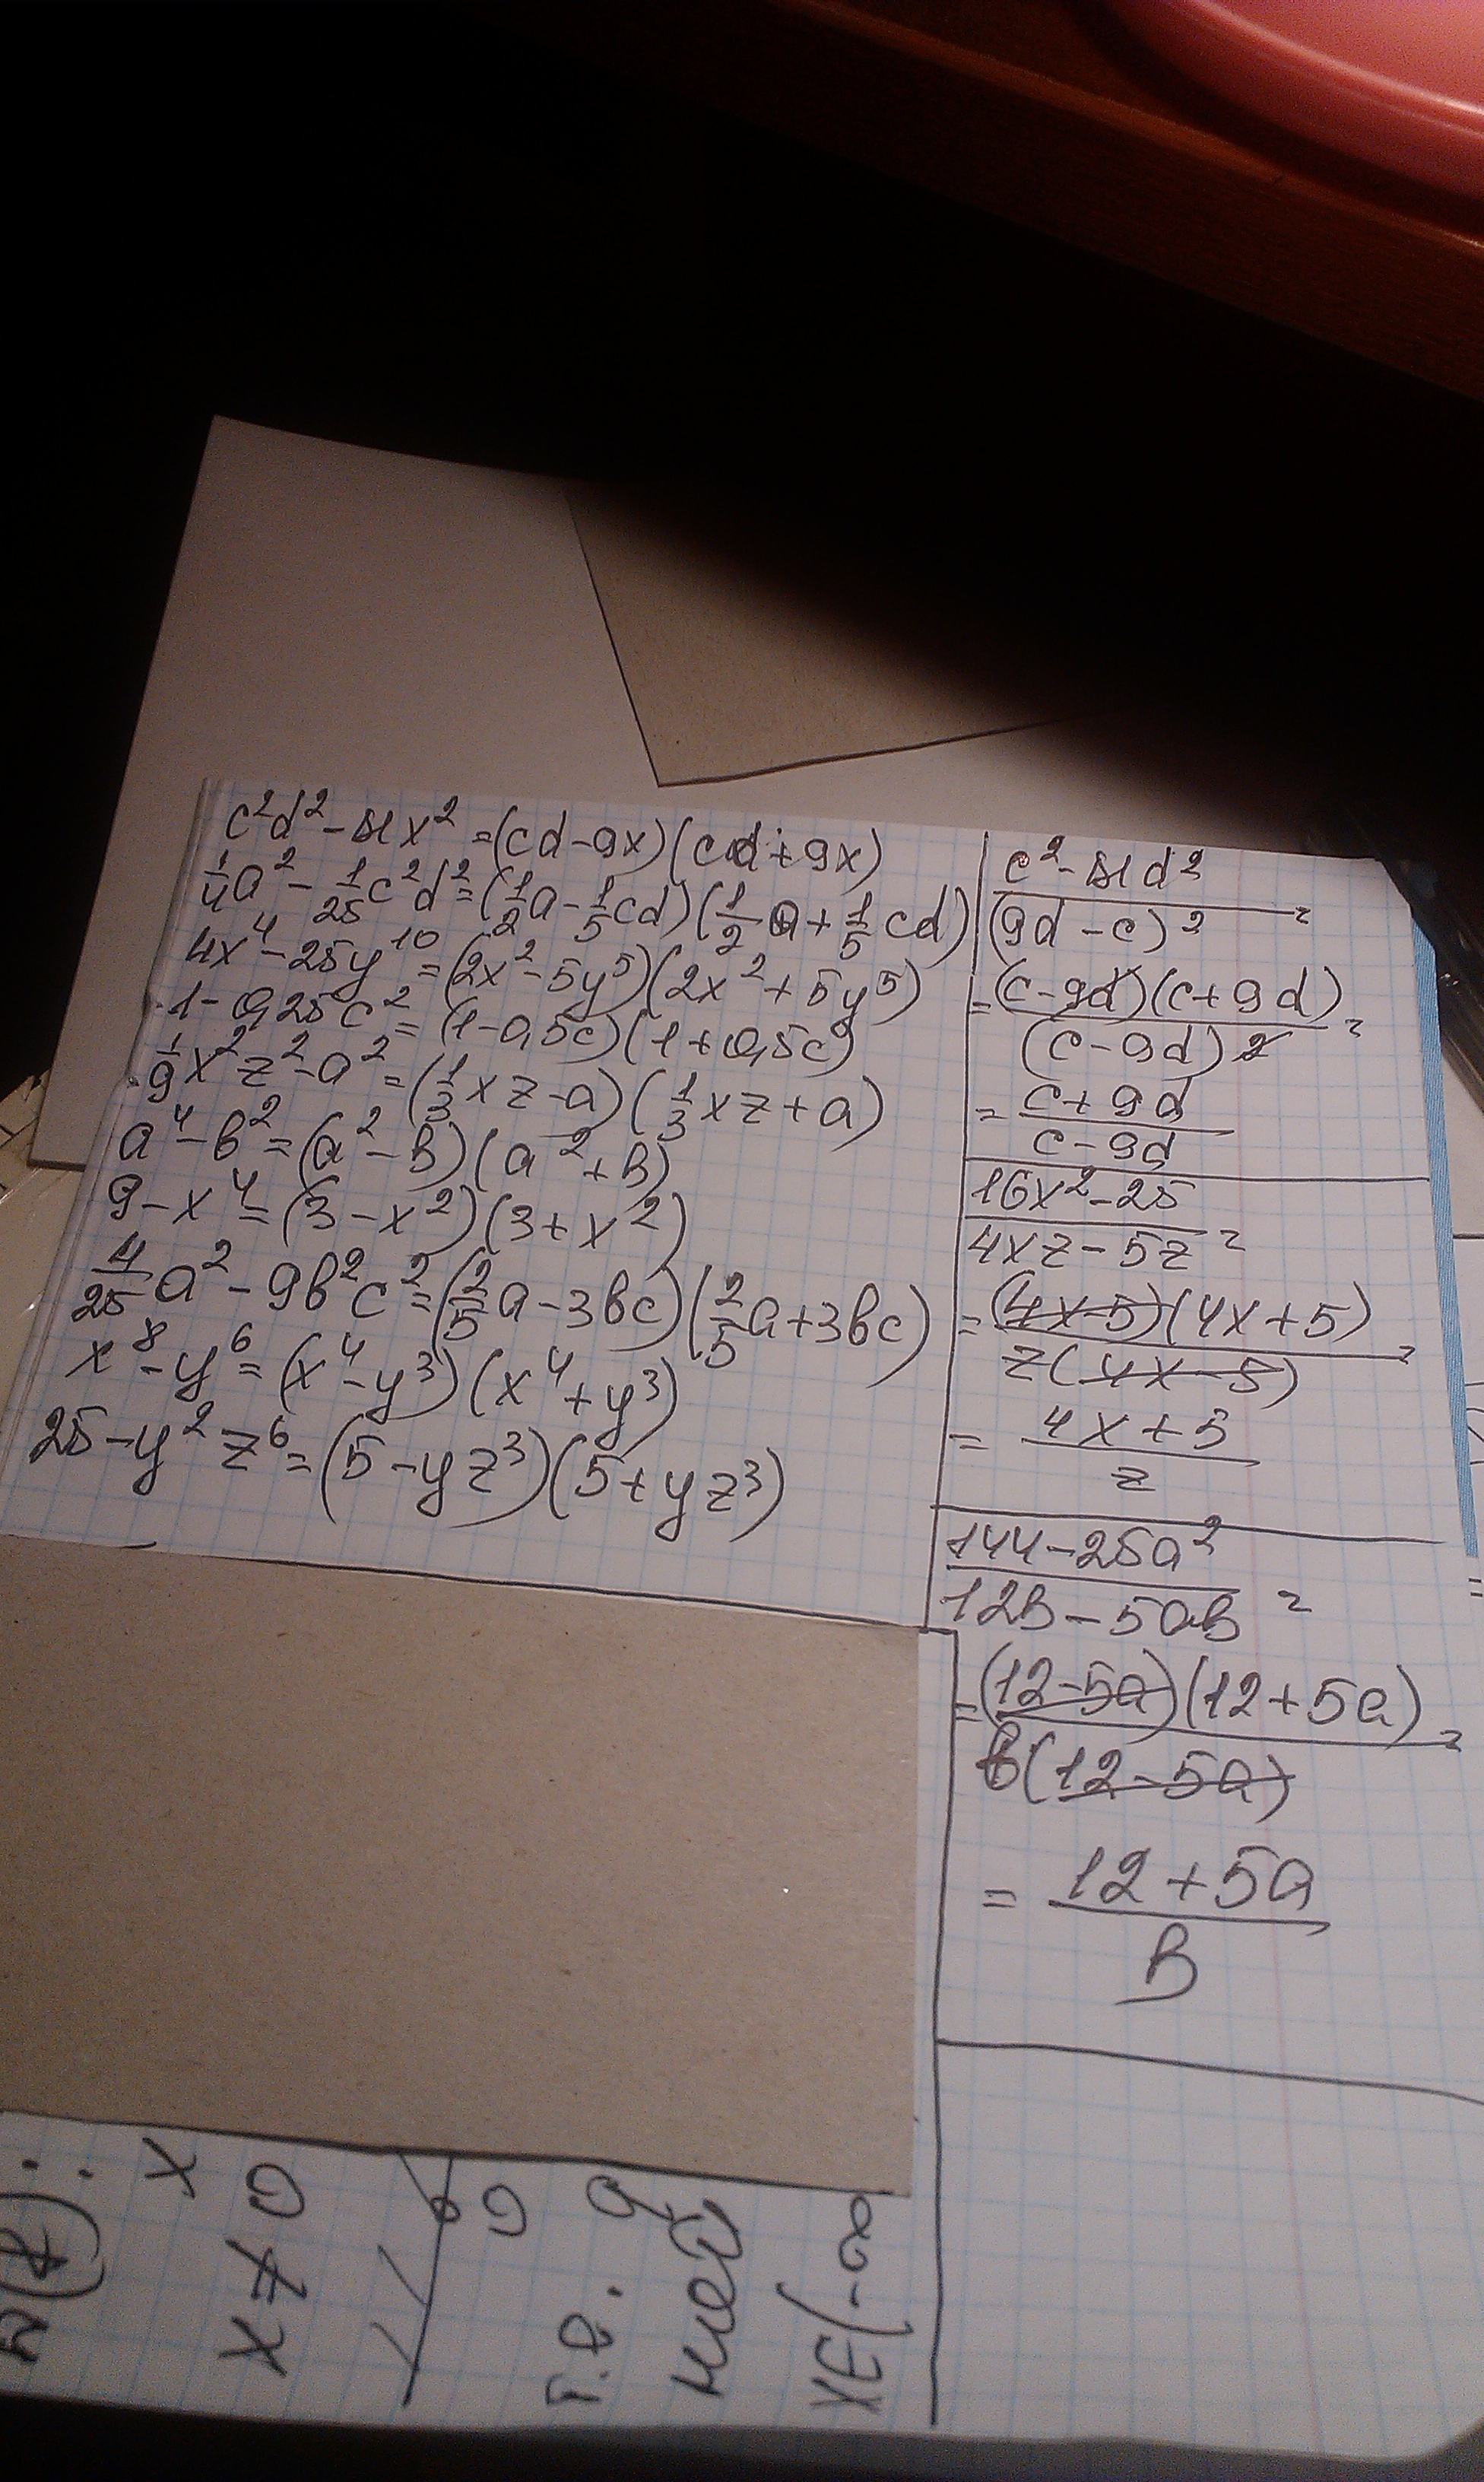 c²d² - 81x² = (cd - 9x)(cd + 9x)
1/4 a² - 1/25 c²d² = (1/2 a - 1/5 cd)(1/2 a + 1/5 cd)
4x⁴ - 25y¹⁰ = (2x² - 5y⁵)(2x² + 5y⁵)
1 - 0,25c² = (1 - 0,5c)(1 + 0,5c)
1/9 x²z² - a² = (1/3 xz - a)(1/3 xz + a)
a⁴ - b² = (a² - b)(a² + b)
9 - x⁴ = (3 - x²)(3 + x²)
4/25 a² - 9b²c² = (2/5 a - 3bc)(2/5 a + 3bc)
x⁸ - y⁶ = (x⁴ - y³)(x⁴ + y³)
25 - y²z⁶ = (5 - yz³)(5 + yz³)
c² - 81d²
(9d - c)² =
= (c - 9d)(c + 9d)
(c - 9d)² =
= c + 9d
c - 9d
16x² - 25
4xz - 5z =
= (4x - 5)(4x + 5)
z(4x - 5) =
= 4x + 5
z
144 - 25a²
12b - 5ab =
= (12 - 5a)(12 + 5a)
b(12 - 5a) =
= 12 + 5a
b
x ≠ 0
т.е.
xE(-∞